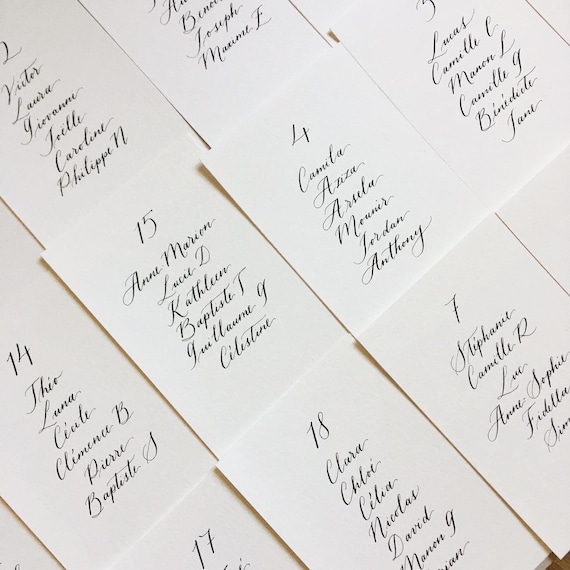 Joseph
Maxime E
3
Lucas
Camille C
Manon L
Camille J
Bénédicte
Jane
2
Victor
Laura
Giovanni
Joëlle
Caroline
Philippe N
4
Camila
Aziza
Arselu
Mounir
Jordan
Anthony
15
Anne Marion
Lucie D
Kathleen
Baptiste T
Guillaume G
Célestine
7
Stéphanie
Camille R
Luc
Anne Sophie
Fidella
14
Théo
Luna
Cécile
Clémence B
Pierre
Baptiste S
18
Clara
Chloé
Célia
Nicolas
David
Manon G
17